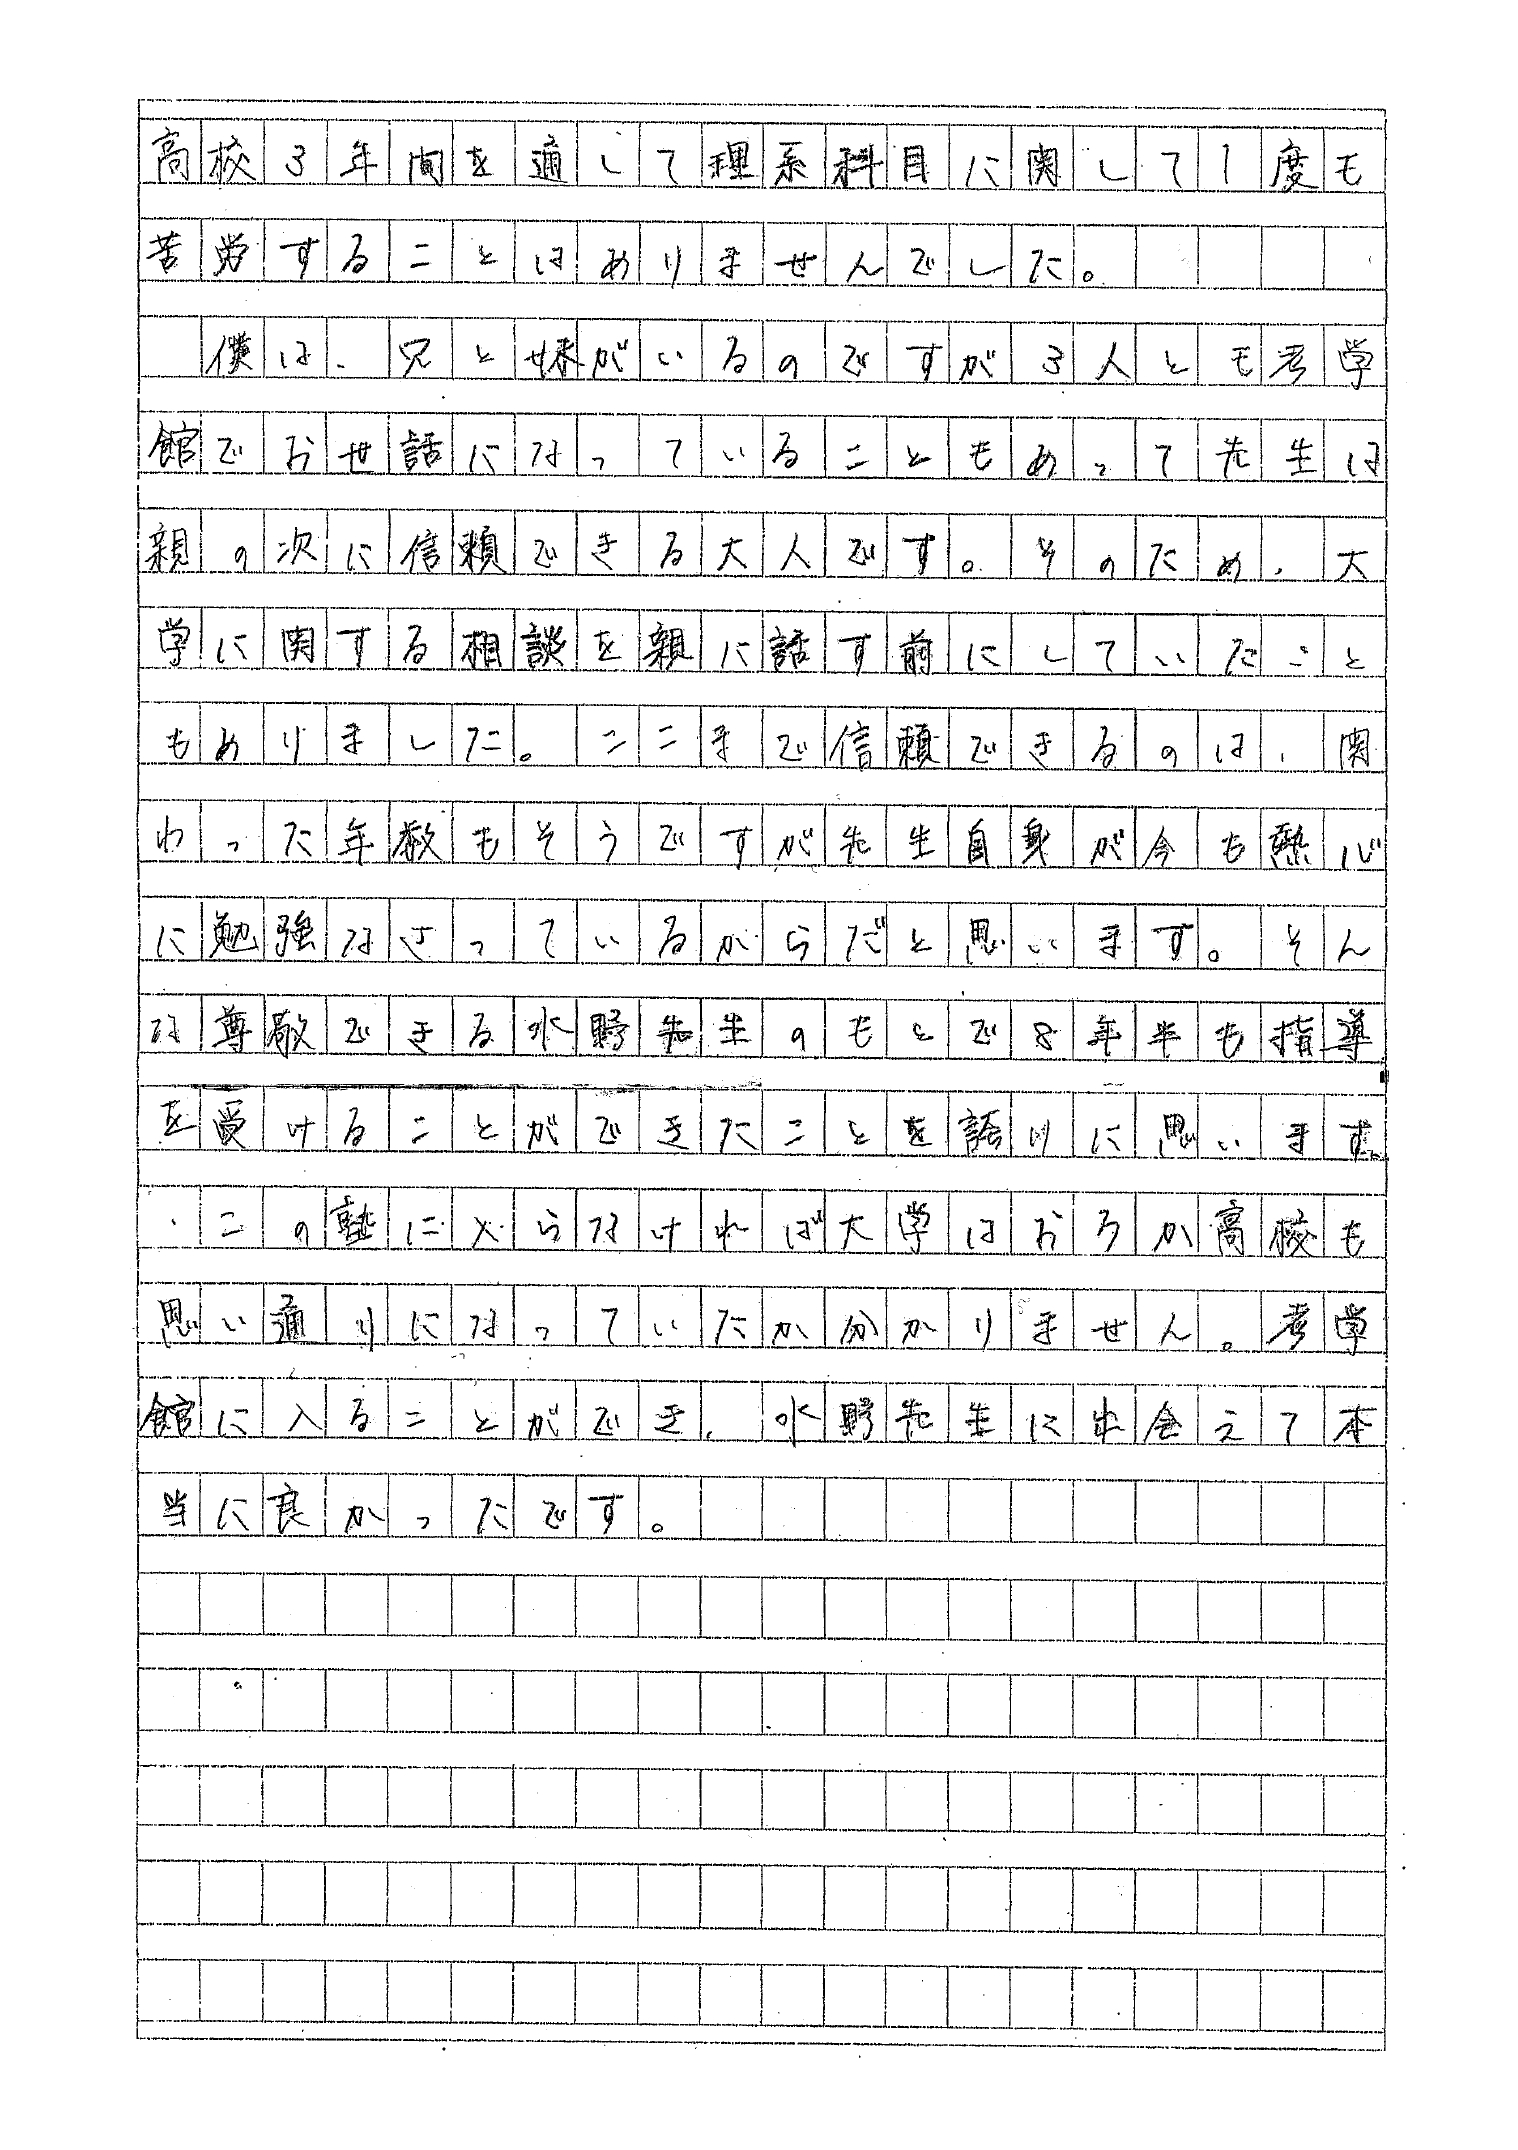 高校3年間を通して理系科目に関して1度も
苦労することはありませんでした。
僕は、兄と妹がいるのですが3人とも考学
館でお世話になっていることもあって先生は
親の次に信頼できる大人です。そのため、大
学に関する相談を親に話す前にしていたこと
もありました。ここまで信頼できるのは、関
わった年数もそうですが先生自身が今も熱心
に勉強なさっているからだと思います。そん
な尊敬できる水野先生のもとで8年半も指導
を受けることができたことを誇りに思います。
この塾に入らなければ大学はおろか高校も
思い通りになっていたか分かりません。考学
館に入ることができ、水野先生に出会えて本
当に良かったです。